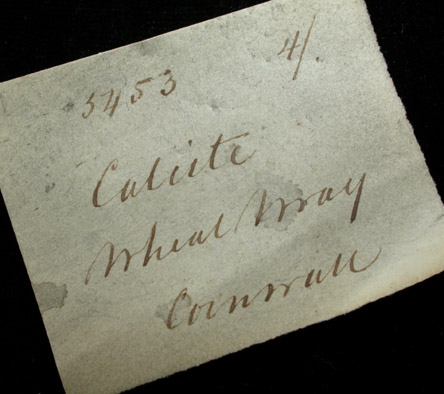 5453 4/.
Calcite
Wheal Wray
Cornwall